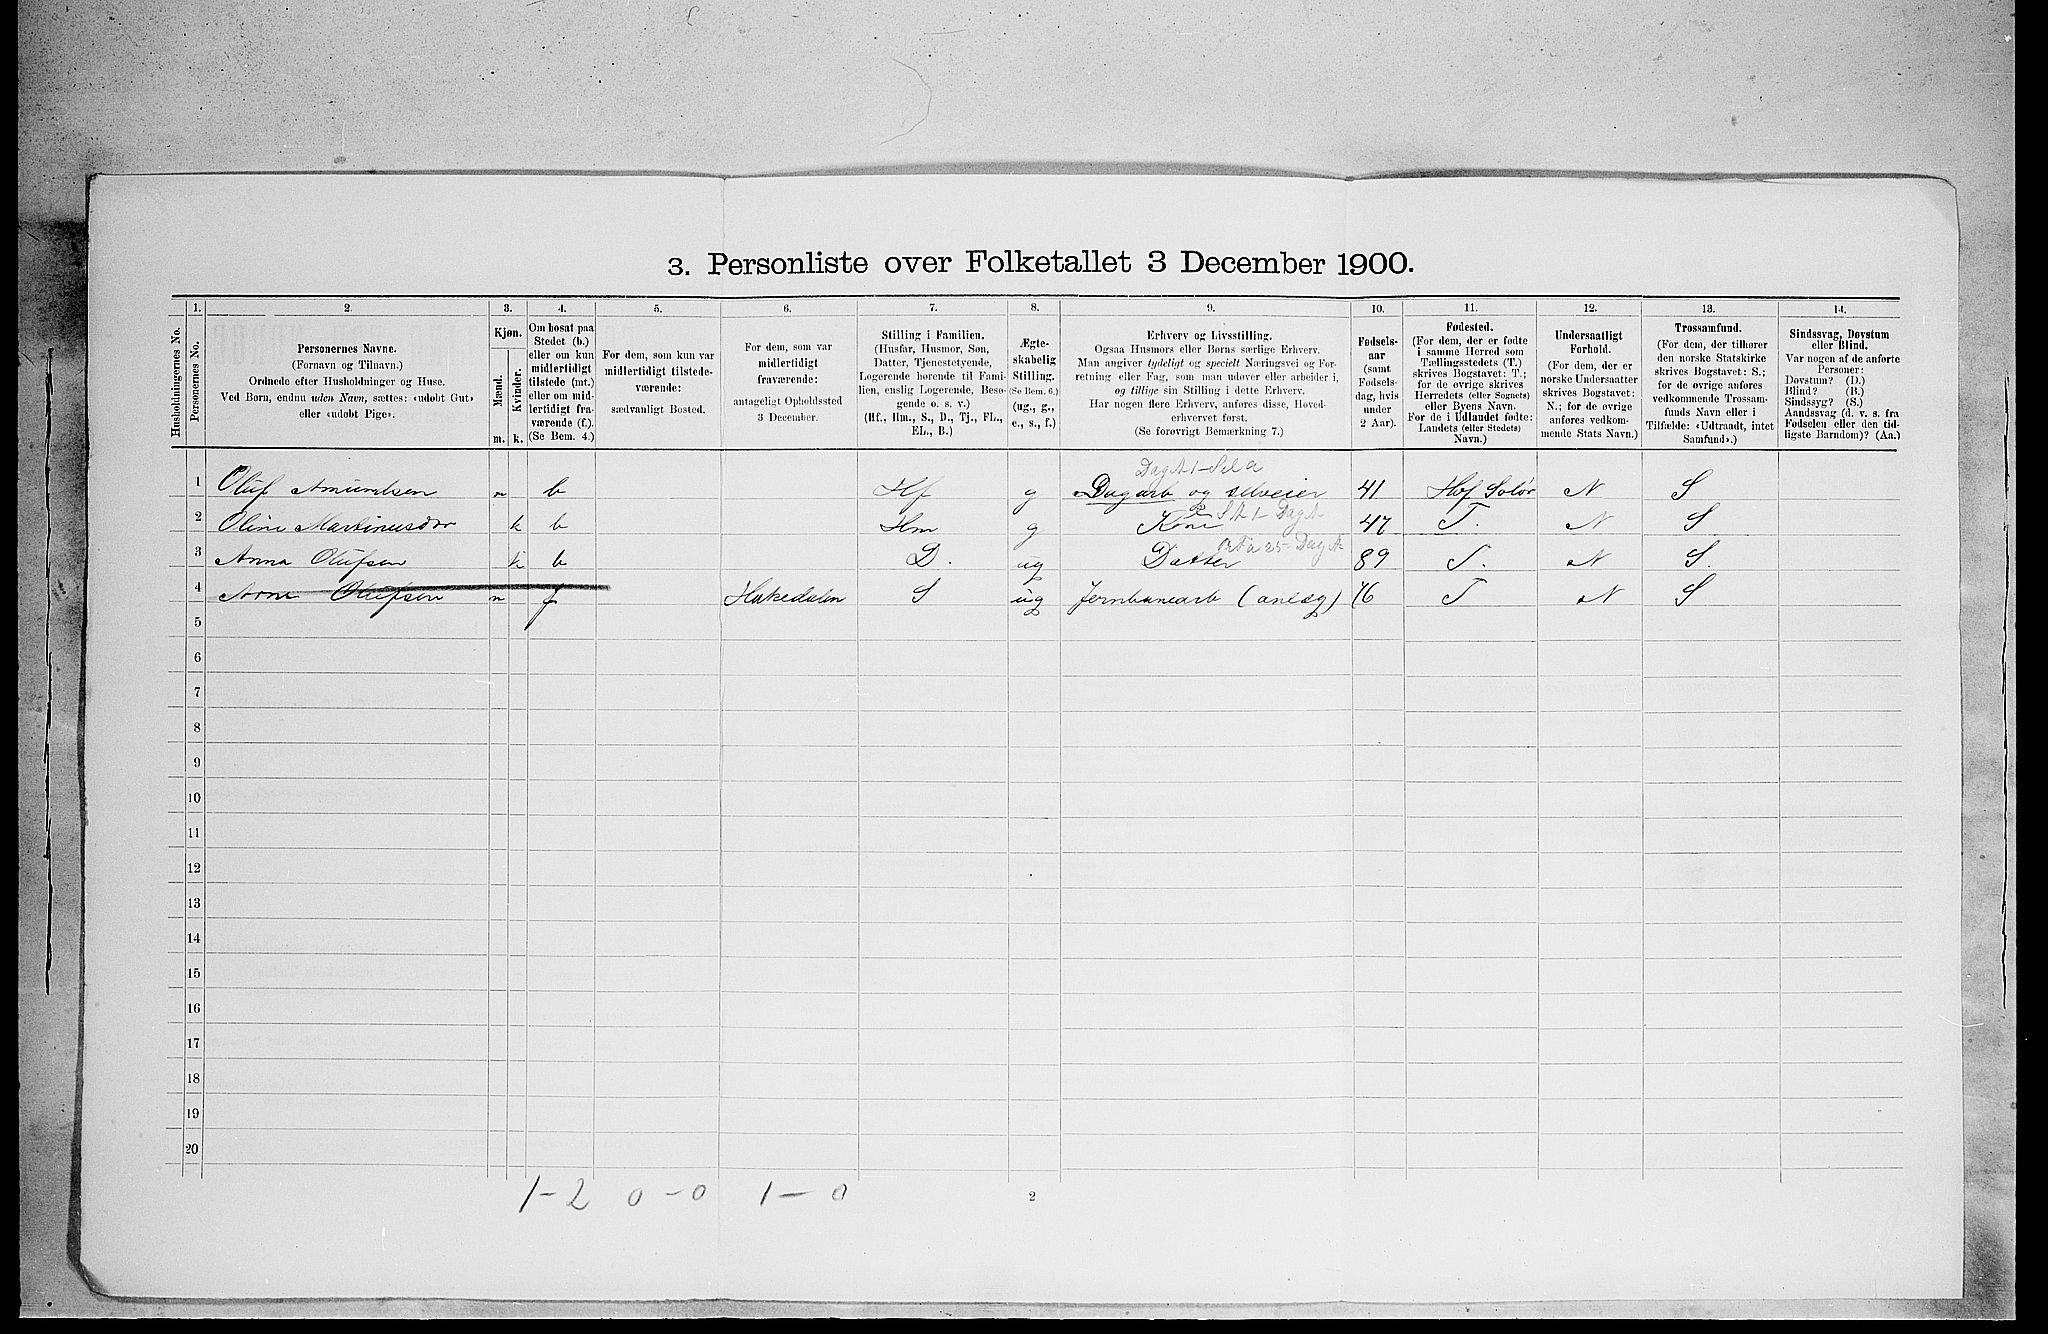 3. Personliste over Folketallet 3 December 1900.
1. 2. 3. 4. 5. 6. 7. 8. 9. 10. 11. 12. 13. 14.
Husholdningernes No.
Personernes No.
Personernes Navne.
(Fornavn og Tilnavn.)
Ordnede efter Husholdninger og Huse.
Ved Børn, endnu uden Navn, sættes: «udøbt Gut»
eller «udøbt Pige».
Kjøn.
Mænd.
Kvinder.
m. k.
Om bosat paa
Stedet (b.)
eller om kun
midlertidigt
tilstede (mt.)
eller om mid-
lertidigt fra-
værende (f.).
(Se Bem. 4.)
For dem, som kun var
midlertidigt tilstede-
værende:
sædvanligt Bosted.
For dem, som var
midlertidigt
fraværende:
antageligt Opholdssted
3 December.
Stilling i Familien.
(Husfar, Husmor, Søn,
Datter, Tjenestetyende,
Logerende hørende til Fami-
lien, enslig Logerende, Besø-
gende o. s. v.)
(Hf., Hm., S., D., Tj., FL.,
EL., B.)
Ægte-
skabelig
Stilling.
(Se Bem. 6.)
(ug., g.,
e., s., f.)
Erhverv og Livsstilling.
Ogsaa Husmors eller Børns særlige Erhverv.
Man angiver tydeligt og specielt Næringsvei og For-
retning eller Fag, som man udøver eller arbeider i,
og tillige sin Stilling i dette Erhverv.
Har nogen flere Erhverv, anføres disse, Hoved-
erhvervet først.
(Se forøvrigt Bemærkning 7.)
Fødsels-
aar
(samt
Fødsels-
dag, hvis
under
2 Aar).
Fødested.
(For dem, der er fødte
i samme Herred som
Tællingsstedets (T.)
skrives Bogstavet: T.;
for de øvrige skrives
Herredets (eller Sognets)
eller Byens Navn.
For de i Udlandet fødte:
Landets (eller Stedets)
Navn.)
Undersaatligt
Forhold.
(For dem, der er
norske Undersaatter
skrives Bogstavet:
N.; for de øvrige
anføres vedkom-
mende Stats Navn.)
Trossamfund.
(For dem, der tilhører
den norske Statskirke
skrives Bogstavet: S.;
for de øvrige anføres
vedkommende Trossam-
funds Navn eller i
Tilfælde: «Udtraadt, intet
Samfund».)
Sindssvag, Døvstum
eller Blind.
Var nogen af de anførte
Personer:
Døvstum? (D.)
Blind? (B.)
Sindssyg? (S.)
Aandssvag (d. v. s. fra
Fødselen eller den tid-
ligste Barndom)? (Aa.)
1 Oluf Amundsen m b Hf g Dagarb og selveier 41 Hof Solør N S
2 Oline Martinusdtr k b Hm g Kone 47 T. N S
3 Anna Olufsen k b D. ug Datter 89 T. N S.
4 Arne Olufsen m f Hakedalen S ug Jernbanearb (anlæg) 76 T N S
5
6
7
8
9
10
11
12
13
14
15
16
17
18
19
20
1-2 0-0 1-0
2